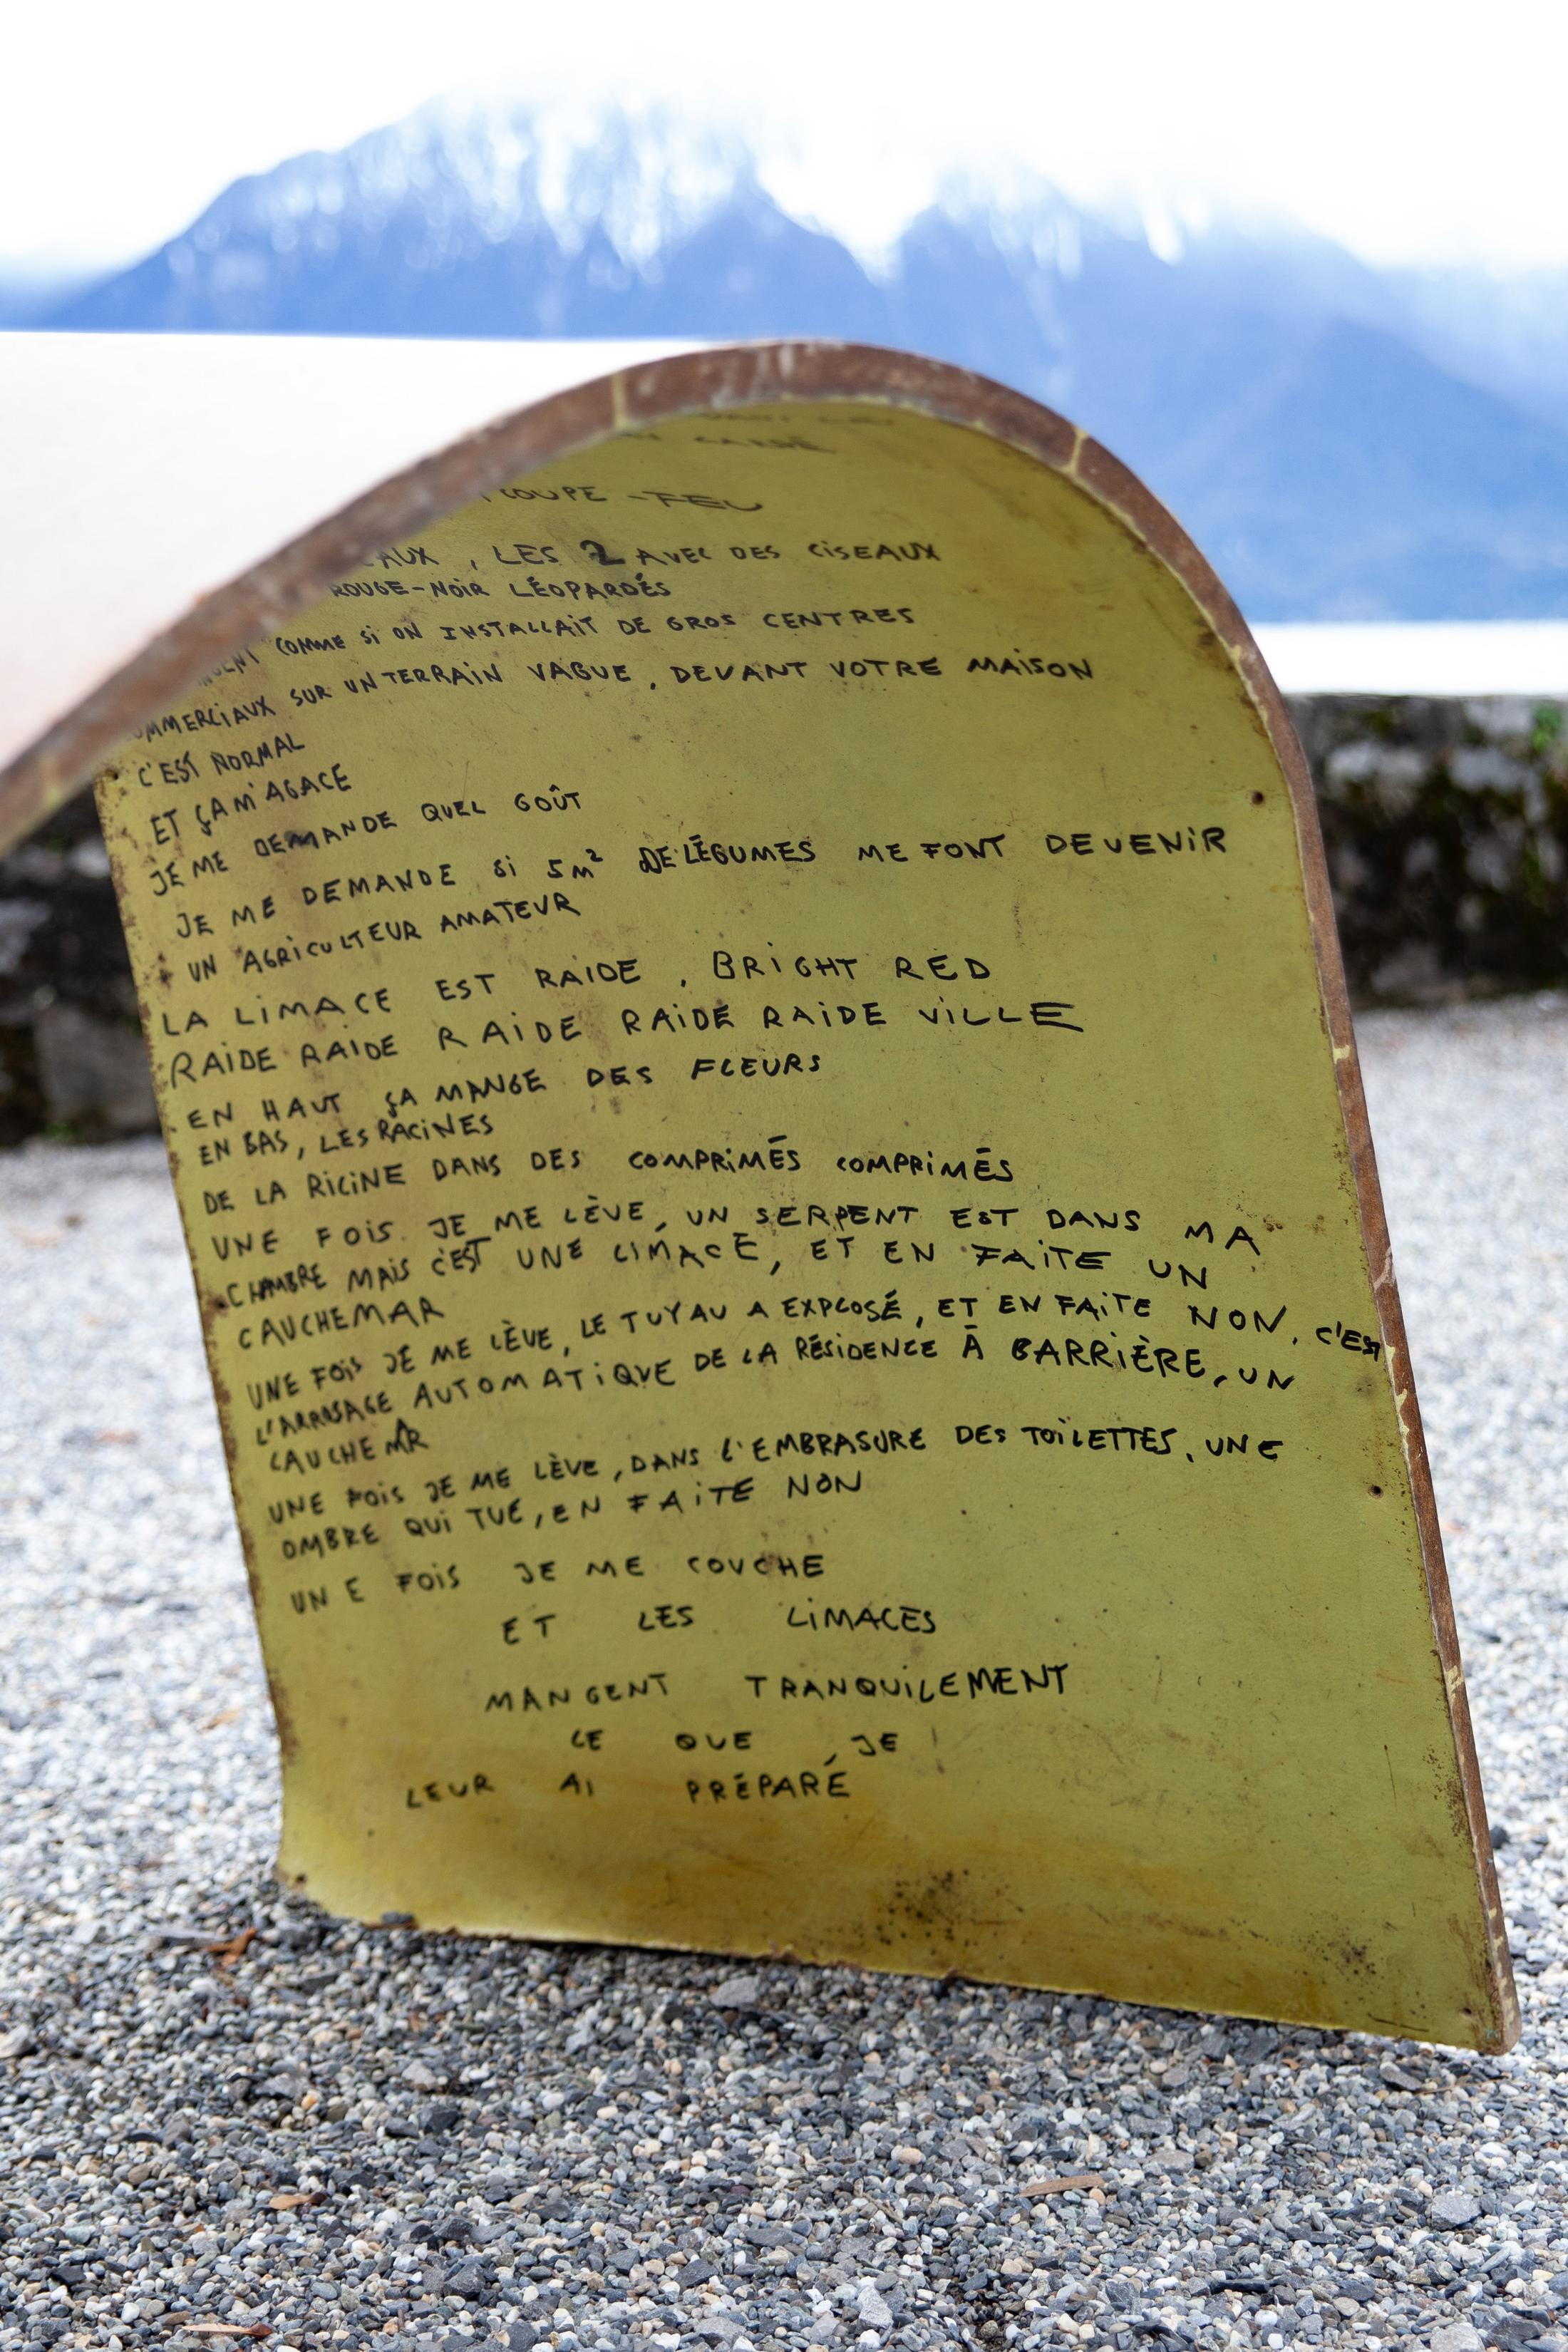 COUPE-FEU
, LES 2 AVEC DES CISEAUX
ROUGE-NOIR LÉOPARDÉS
COMME SI ON INSTALLAIT DE GROS CENTRES
COMMERCIAUX SUR UN TERRAIN VAGUE, DEVANT VOTRE MAISON
C'EST NORMAL
ET ÇA M'AGACE
JE ME DEMANDE QUEL GOÛT
JE ME DEMANDE SI 5M² DE LÉGUMES ME FONT DEVENIR
UN AGRICULTEUR AMATEUR
LA LIMACE EST RAIDE, BRIGHT RED
RAIDE RAIDE RAIDE RAIDE RAIDE VILLE
EN HAUT ÇA MANGE DES FLEURS
EN BAS, LES RACINES
DE LA RICINE DANS DES COMPRIMÉS COMPRIMÉS
UNE FOIS JE ME LÈVE, UN SERPENT EST DANS MA
CHAMBRE MAIS C'EST UNE LIMACE, ET EN FAITE UN
CAUCHEMAR
UNE FOIS JE ME LÈVE, LE TUYAU A EXPLOSÉ, ET EN FAITE NON, C'EST
L'ARROSAGE AUTOMATIQUE DE LA RÉSIDENCE À BARRIÈRE, UN
CAUCHEMAR
UNE FOIS JE ME LÈVE, DANS L'EMBRASURE DES TOILETTES, UNE
OMBRE QUI TUE, EN FAITE NON
UNE FOIS JE ME COUCHE
ET LES LIMACES
MANGENT TRANQUILEMENT
CE QUE, JE
LEUR AI PRÉPARÉ